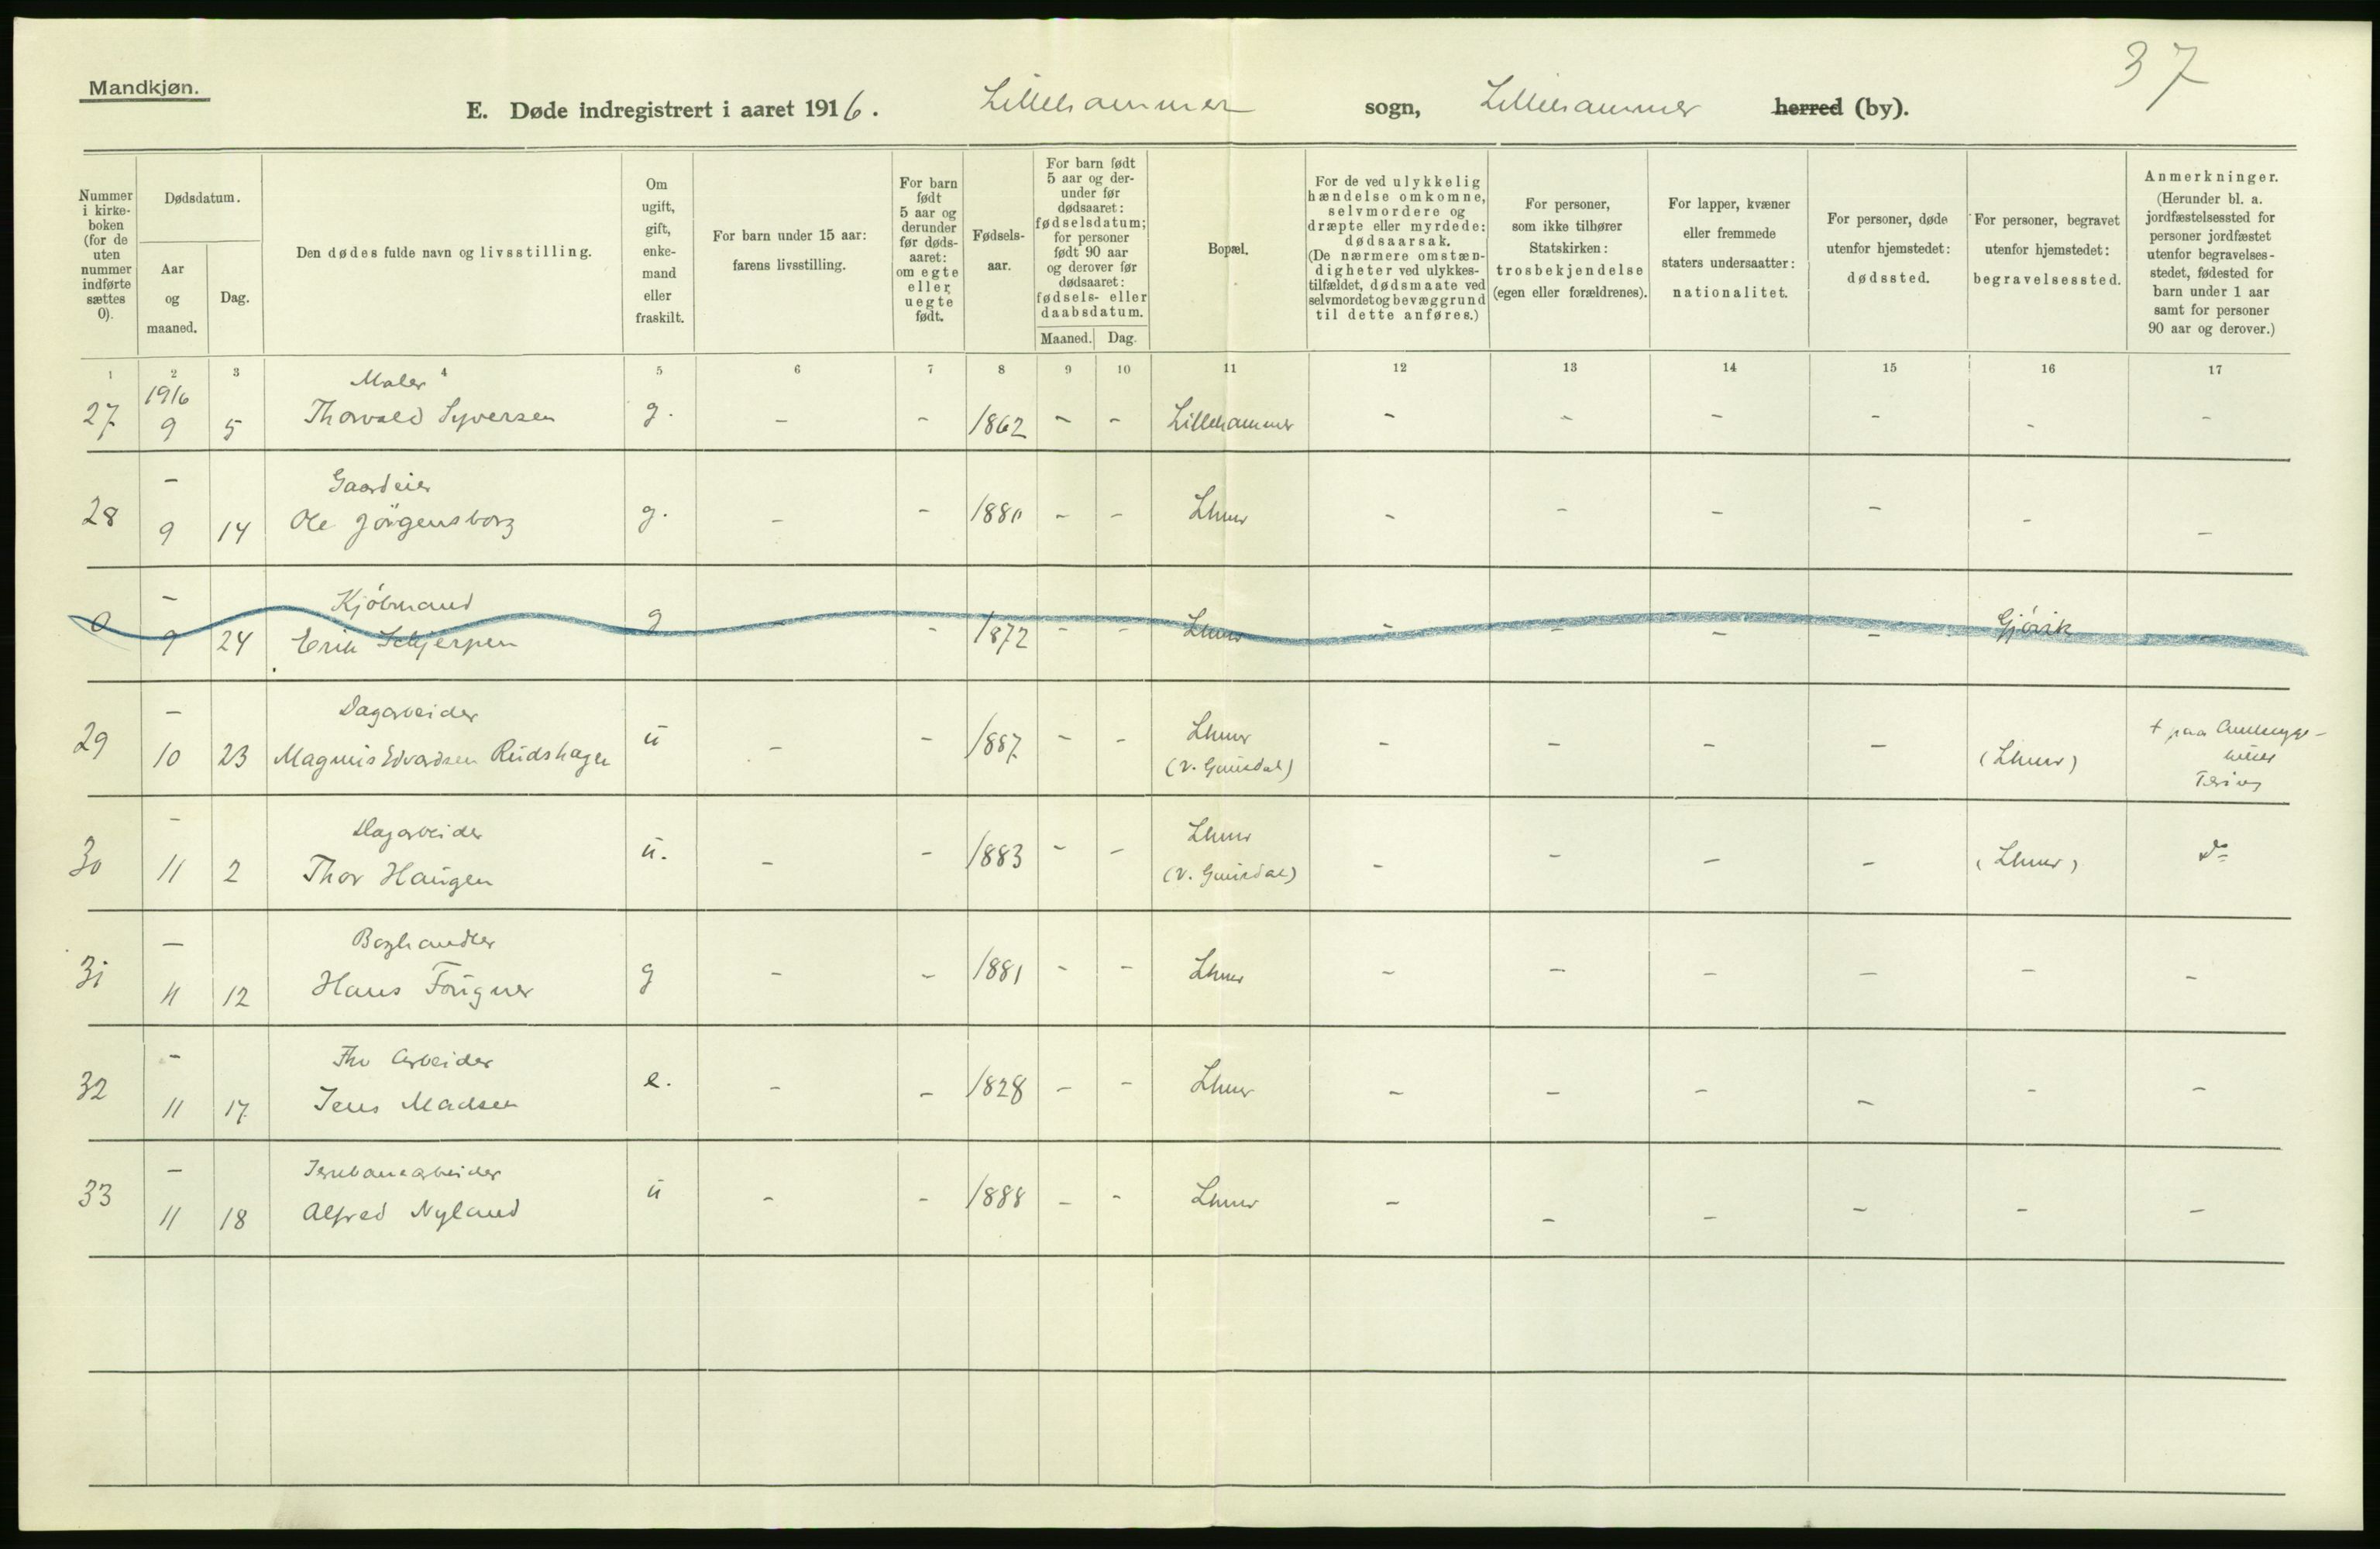 37
Mandkjøn.
E. Døde indregistrert i aaret 1916. Lillehammer sogn, Lillehammer herred (by).
Nummer i kirke-boken (for de uten nummer indførte sættes 0).
Dødsdatum.
Aar og maaned.
Dag.
Den dødes fulde navn og livsstilling.
Om ugift, gift, enke-mand eller fraskilt.
For barn under 15 aar: farens livsstilling.
For barn født 5 aar og derunder før døds-aaret: om egte eller uegte født.
Fødsels-aar.
For barn født 5 aar og der-under før dødsaaret: fødselsdatum; for personer født 90 aar og derover før dødsaaret: fødsels- eller daabsdatum.
Maaned.
Dag.
Bopæl.
For de ved ulykkelig hændelse omkomne, selvmordere og dræpte eller myrdede: dødsaarsak. (De nærmere omstæn-digheter ved ulykkes-tilfældet, dødsmaate ved selvmordet og bevæggrund til dette anføres.)
For personer, som ikke tilhører Statskirken: trosbekjendelse (egen eller forældrenes).
For lapper, kvæner eller fremmede staters undersaatter: nationalitet.
For personer, døde utenfor hjemstedet: dødssted.
For personer, begravet utenfor hjemstedet: begravelsessted.
Anmerkninger. (Herunder bl. a. jordfæstelsessted for personer jordfæstet utenfor begravelses-stedet, fødested for barn under 1 aar samt for personer 90 aar og derover.)
1 2 3 4 5 6 7 8 9 10 11 12 13 14 15 16 17
1916 Maler
27 9 5 Thorvald Syversen g. - - 1862 - - Lillehammer - - - - - -
- Gaardeier
28 9 14 Ole Jörgensborg g. - - 1880 - - Lhmr - - - - - -
- Kjöbmand
0 9 24 Erik Schjerpen g - - 1872 - - Lhmr - - - - Gjövik -
- Dagarbeider
29 10 23 Magnus Edvardsen Rudshagen u - - 1887 - - Lhmr (V. Gausdal) - - - - (Lhmr) + paa
- Dagarbeider
30 11 2 Thor Haugen u. - - 1883 - - Lhmr (V. Gausdal) - - - - (Lhmr) do
- Boghandler
31 11 12 Hans Fougner g - - 1881 - - Lhmr - - - - - -
- Fhv Arbeider
32 11 17 Jens Madsen e. - - 1828 - - Lhmr - - - - - -
- Jernbanearbeider
33 11 18 Alfred Nyland u - - 1888 - - Lhmr - - - - - -